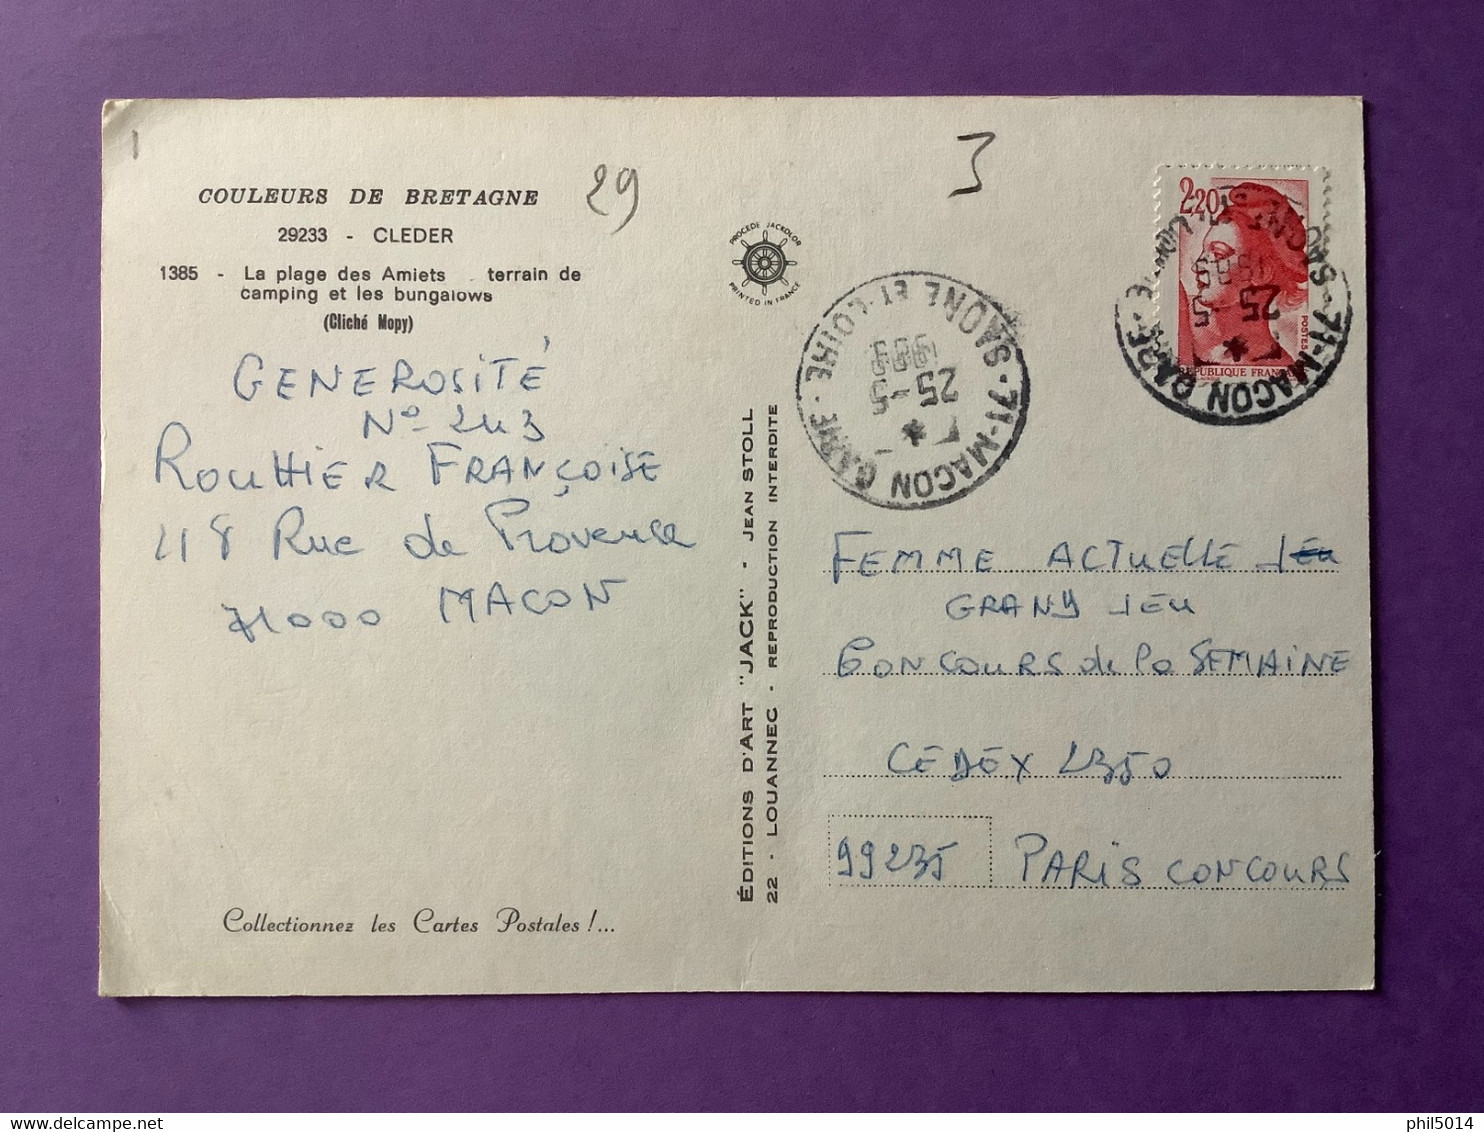 29
3
COULEURS DE BRETAGNE
29233 - CLEDER
1385 - La plage des Amiets terrain de
camping et les bungalows
(Cliché Mopy)
GENEROSITÉ
No 243
ROUTHIER FRANÇOISE
48 Rue de Provence
71000 MACON
Collectionnez les Cartes Postales !...
ÉDITIONS D'ART "JACK" - JEAN STOLL
22 - LOUANNEC - REPRODUCTION INTERDITE
PROCEDE JACKOLOR
PRINTED IN FRANCE
71-MACON GARE · SAONE ET LOIRE
25-5
2,20
POSTES
REPUBLIQUE FRANÇ
71-MACON GARE
25-5
FEMME ACTUELLE JEU
GRANY JEU
CONCOURS de la SEMAINE
CEDEX 2350
99235 PARIS CONCOURS
delcampe.net
phil5014